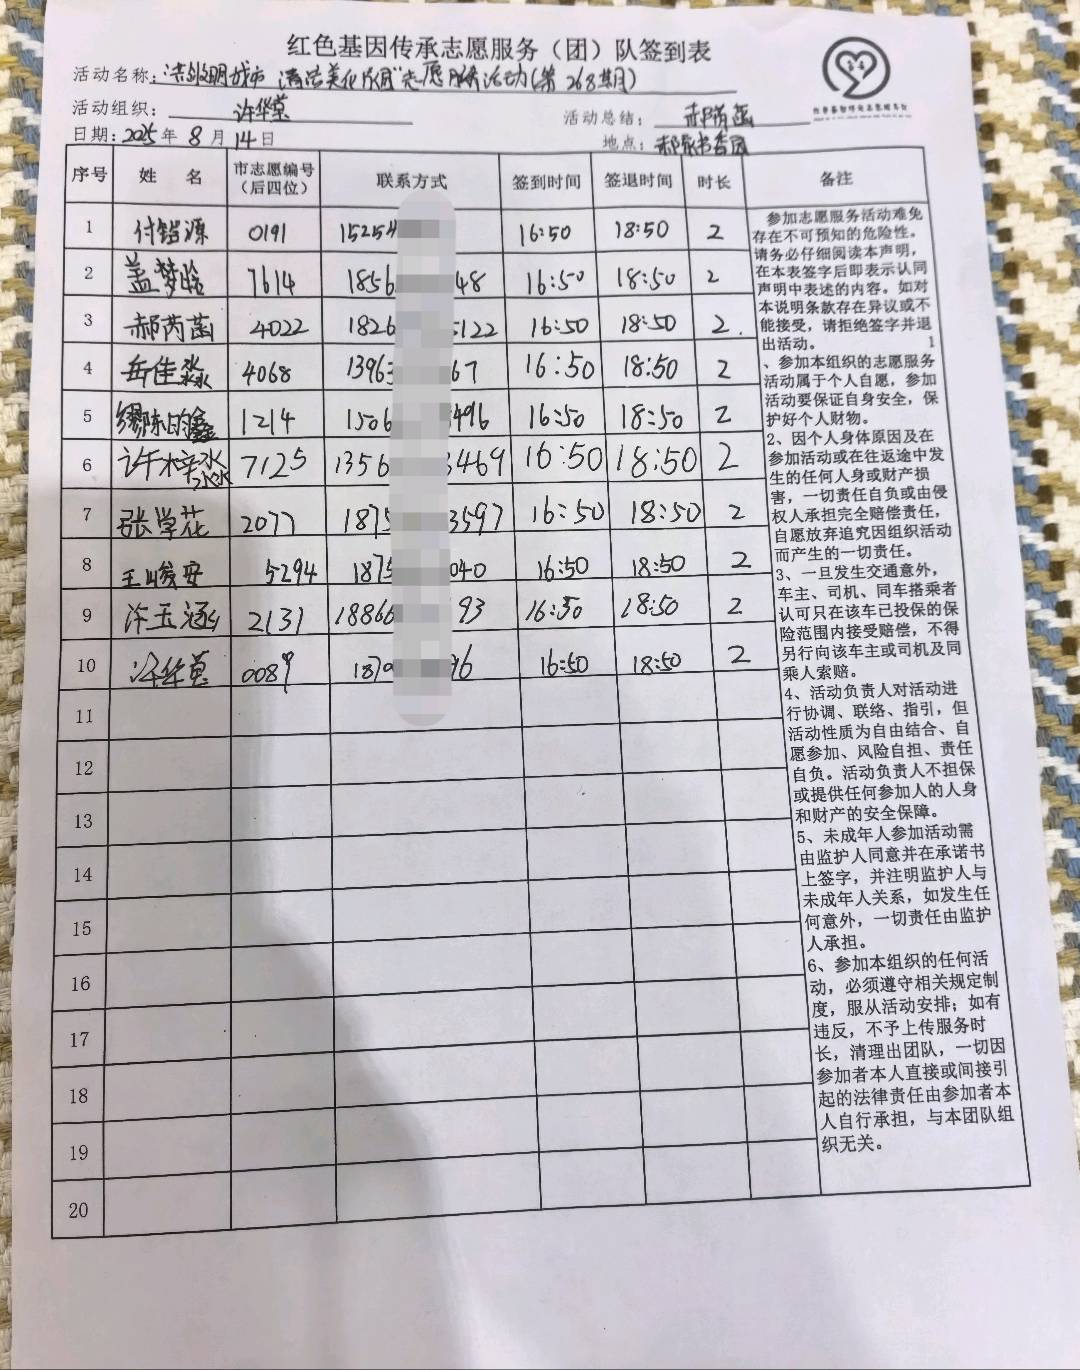 红色基因传承志愿服务（团）队签到表
活动名称："清洁美化家园"志愿服务活动（第268期）
活动组织：许华英
活动总结：郝芮菡
日期：2025年8月14日
地点：郝家书香园
序号 姓 名 市志愿编号（后四位） 联系方式 签到时间 签退时间 时长 备注
1 付铭源 0191 15254 16:50 18:50 2
2 盖梦晗 7614 1856 48 16:50 18:50 2
3 郝芮菡 4022 1826 5122 16:50 18:50 2.
4 岳佳淼 4068 13963 67 16:50 18:50 2
5 1214 1506 3496 16:50 18:50 2
6 许梓淼 7125 1356 3469 16:50 18:50 2
7 张学花 2077 1875 3597 16:50 18:50 2
8 王峻安 5294 1875 040 16:50 18:50 2
9 许玉涵 2131 18866 93 16:50 18:50 2
10 许华英 0089 1870 96 16:50 18:50 2
11
12
13
14
15
16
17
18
19
20
参加志愿服务活动难免
存在不可预知的危险性。
请务必仔细阅读本声明，
在本表签字后即表示认同
声明中表述的内容。如对
本说明条款存在异议或不
能接受，请拒绝签字并退
出活动。 1
、参加本组织的志愿服务
活动属于个人自愿，参加
活动要保证自身安全，保
护好个人财物。
2、因个人身体原因及在
参加活动或在往返途中发
生的任何人身或财产损
害，一切责任自负或由侵
权人承担完全赔偿责任，
自愿放弃追究因组织活动
而产生的一切责任。
3、一旦发生交通意外，
车主、司机、同车搭乘者
认可只在该车已投保的保
险范围内接受赔偿，不得
另行向该车主或司机及同
乘人索赔。
4、活动负责人对活动进
行协调、联络、指引，但
活动性质为自由结合、自
愿参加、风险自担、责任
自负。活动负责人不担保
或提供任何参加人的人身
和财产的安全保障。
5、未成年人参加活动需
由监护人同意并在承诺书
上签字，并注明监护人与
未成年人关系，如发生任
何意外，一切责任由监护
人承担。
6、参加本组织的任何活
动，必须遵守相关规定制
度，服从活动安排；如有
违反，不予上传服务时
长，清理出团队，一切因
参加者本人直接或间接引
起的法律责任由参加者本
人自行承担，与本团队组
织无关。